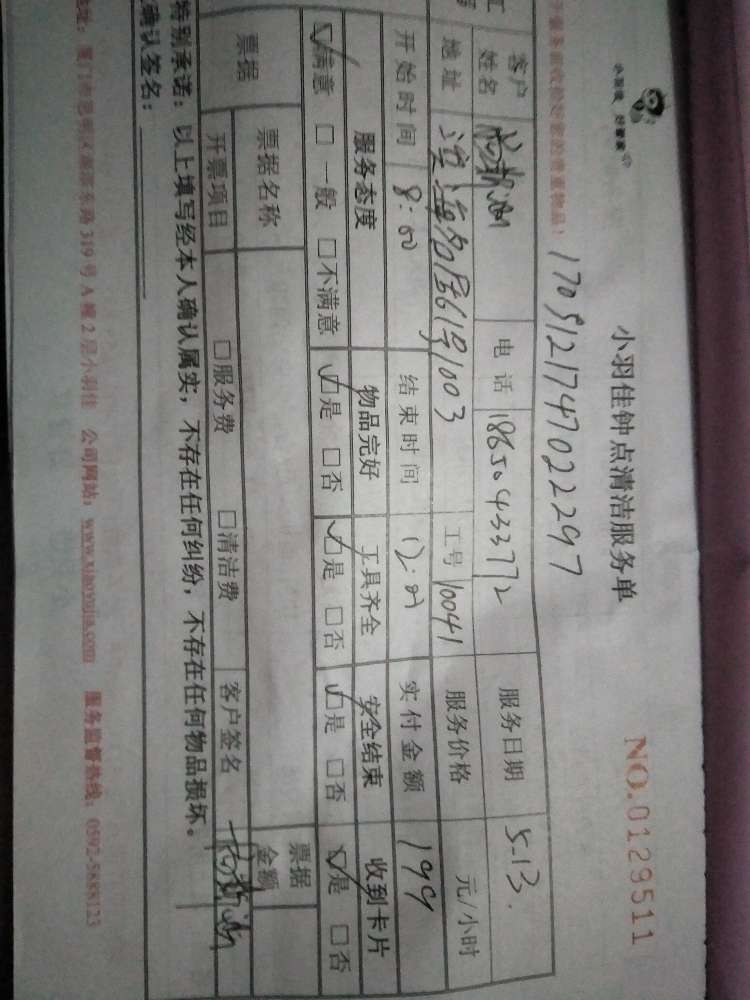 小羽佳 好管家
小羽佳钟点清洁服务单
NO.0129511
170512174702297
客户姓名 电话 18650433772 服务日期 5.13.
地址 003 工号 10041 服务价格 元/小时
开始时间 8:00 结束时间 12:00 实付金额 199
服务态度 物品完好 工具齐全 安全结束 收到卡片
☑满意 □一般 □不满意 ☑是 □否 ☑是 □否 ☑是 □否 ☑是 □否
票据 票据名称 票据金额
开票项目 □服务费 □清洁费 客户签名
特别承诺：以上填写经本人确认属实，不存在任何纠纷，不存在任何物品损坏。
确认签名：
319号A幢2层小羽佳 公司网站：www.xiaoyujia.com 服务监督热线：0592-5888123